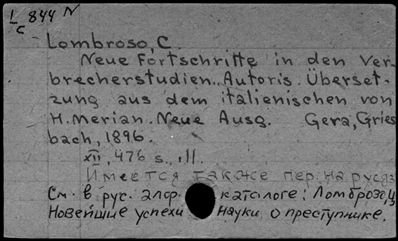 L/c 844 N
Lombroso, C
Neue Fortschritte in den Ver-
brecherstudien. Autoris. Überset-
zung aus dem italienischen von
H. Merian. Neue Ausg. Gera, Gries
bach, 1896.
XII, 476 s., ill.
Имеется также пер. на русяз
См. в рус. алф. каталоге: Ломброзо, Ц
Новейшие успехи науки о преступнике.